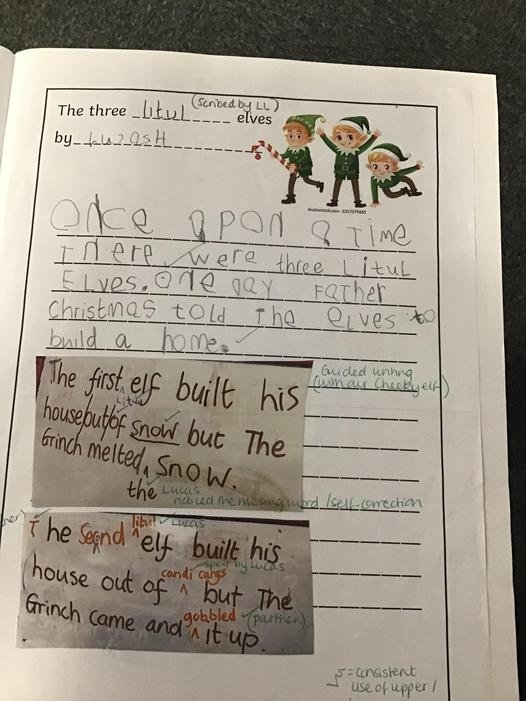 (scribed by LL)
The three litul elves
by
shutterstock.com · 2317379683
Once upon a Time
There were three Litul
ELves. One day Father
Christmas told The eLves to
build a home.
Guided writing
(with our cheeky elf)
The first elf built his
Litul
house out of snow but The
Grinch melted snow.
the Lucas
noticed the missing word / self-correction
litul Lucas
The Second elf built his
spelt by Lucas
candi cangs
house out of but The
gobbled (partner)
Grinch came and it up.
= consistent
use of upper /